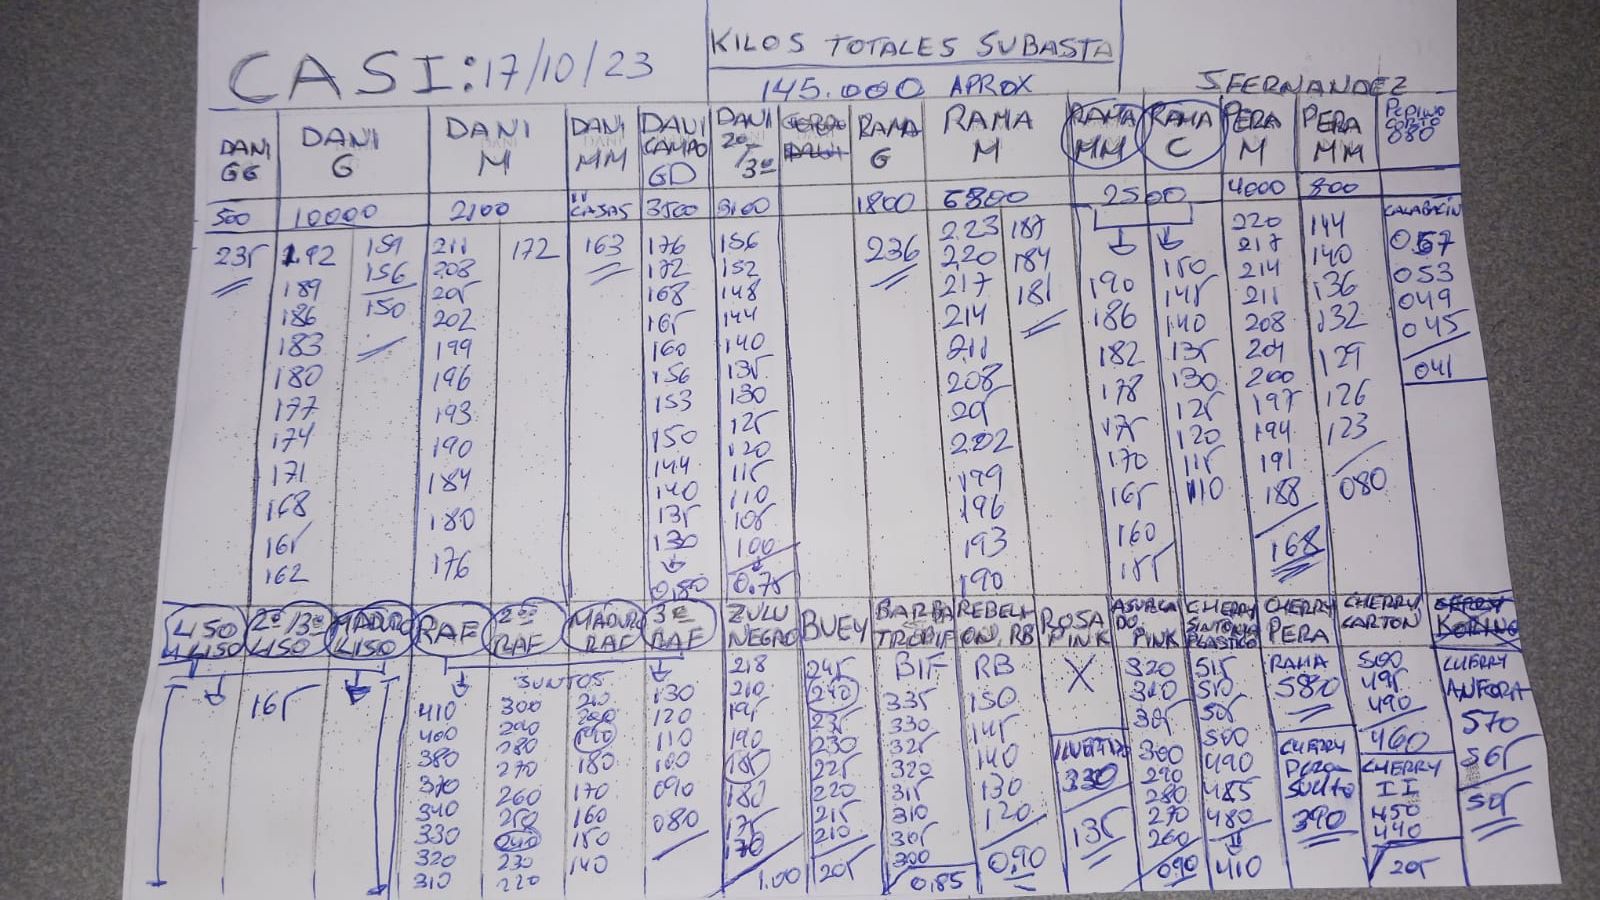 CASI: 17/10/23
KILOS TOTALES SUBASTA
145.000 APROX
JFERNANDEZ
DANI GG
DANI G
DANI M
DANI MM
DANI CAMPO GD
DANI 2ª/3ª
RAMA G
RAMA M
RAMA MM
RAMA C
PERA M
PERA MM
PEPINO CORTO 080
500
10000
2100
CASAS
3500
1800
6800
2500
4000
800
CALABACIN
235
192 189 186 183 180 177 174 171 168 165 162
159 156 150
211 208 205 202 199 196 193 190 184 180 176
172
163
176 172 168 165 160 156 153 150 144 140 135 130
0,80
156 152 148 144 140 135 130 125 120 115 110 105 100
0.75
236
223 220 217 214 211 208 205 202 199 196 193 190
187 184 181
190 186 182 178 175 170 165 160 155
150 145 140 135 130 125 120 115 110
220 217 214 211 208 204 200 197 194 191 188
168
144 140 136 132 129 126 123
080
0.57 053 049 045
041
LISO
2ª/3ª LISO
MADURO LISO
RAF
2ª RAF
MADURO RAF
3ª RAF
ZULU NEGRO
BUEY
BARBA TROPIF
REBELION RB
ROSA PINK
ASURCADO PINK
CHERRY SINTONIA PLASTICO
CHERRY PERA
CHERRY CARTON
165
JUNTOS
410 400 380 370 340 330 320 310
300 290 280 270 260 250 240 230 220
180 170 160 150 140
130 120 110 100 090 080
218 210 195 190 185 180 175 170
1.00
245 240 235 230 225 220 215 210
205
BIF
335 330 325 320 315 310 305 300
0.85
RB
150 145 140 130 120
0.90
X
330
135
320 310 305 300 290 280 270 260
0.90
515 510 505 500 490 485 480
410
RAMA
580
CHERRY PERA SUELTO
390
500 495 490
460
CHERRY II
450 440
205
CHERRY ANFORA
570 565
505